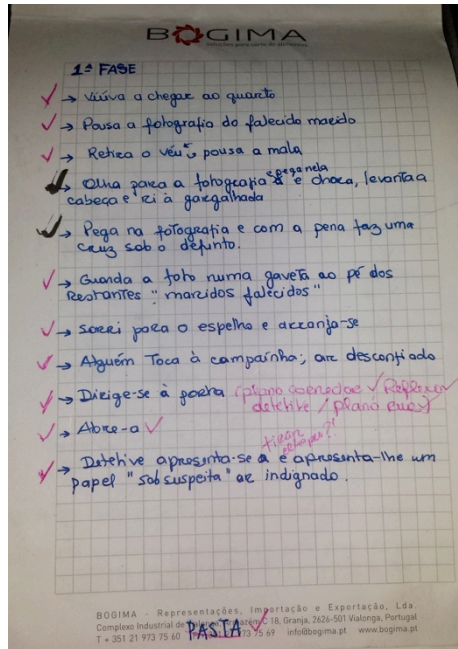 BOGIMA
Soluções para corte de alimentos
1ª FASE
→ Viúva a chegar ao quarto
→ Pousa a fotografia do falecido marido
→ Retira o véu e pousa a mala
→ Olha para a fotografia e pega nela e chora, levanta a
cabeça e ri à gargalhada
→ Pega na fotografia e com a pena faz uma
cruz sob o defunto.
→ Guarda a foto numa gaveta ao pé dos
Restantes "maridos falecidos"
→ Sorri para o espelho e arranja-se
→ Alguém Toca à campaínha; ar desconfiado
→ Dirige-se à porta (plano corredor ✓ Reflexo
detetive / plano rua)
→ Abre-a ✓
tiram
→ Detetive apresenta-se e apresenta-lhe um
papel "sob suspeita" ar indignado.
BOGIMA - Representações, Importação e Exportação, Lda.
Complexo Industrial de Armazém C 18, Granja, 2626-501 Vialonga, Portugal
T + 351 21 973 75 60 973 75 69 info@bogima.pt www.bogima.pt
PASTA ✓